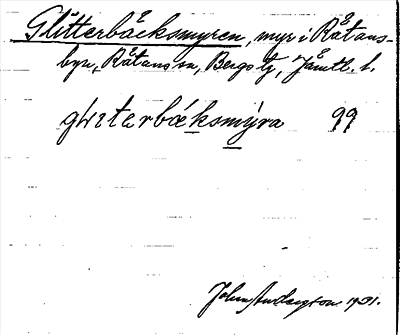 Glitterbäcksmyren, myr i Råtans-
byn, Råtans sn, Bergs tg, Jämtl. l.
glɪterbækṣmýra 99
John Anderzson 1931.